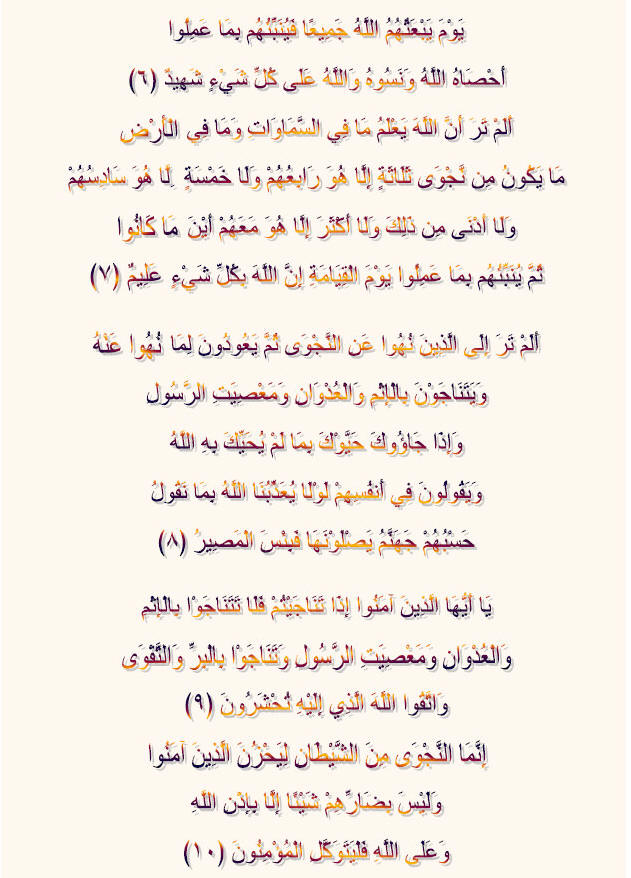 يَوْمَ يَبْعَثُهُمُ اللَّهُ جَمِيعًا فَيُنَبِّئُهُم بِمَا عَمِلُوا
أَحْصَاهُ اللَّهُ وَنَسُوهُ وَاللَّهُ عَلَى كُلِّ شَيْءٍ شَهِيدٌ (٦)
أَلَمْ تَرَ أَنَّ اللَّهَ يَعْلَمُ مَا فِي السَّمَاوَاتِ وَمَا فِي الْأَرْضِ
مَا يَكُونُ مِن نَّجْوَى ثَلَاثَةٍ إِلَّا هُوَ رَابِعُهُمْ وَلَا خَمْسَةٍ إِلَّا هُوَ سَادِسُهُمْ
وَلَا أَدْنَى مِن ذَلِكَ وَلَا أَكْثَرَ إِلَّا هُوَ مَعَهُمْ أَيْنَ مَا كَانُوا
ثُمَّ يُنَبِّئُهُم بِمَا عَمِلُوا يَوْمَ الْقِيَامَةِ إِنَّ اللَّهَ بِكُلِّ شَيْءٍ عَلِيمٌ (٧)
أَلَمْ تَرَ إِلَى الَّذِينَ نُهُوا عَنِ النَّجْوَى ثُمَّ يَعُودُونَ لِمَا نُهُوا عَنْهُ
وَيَتَنَاجَوْنَ بِالْإِثْمِ وَالْعُدْوَانِ وَمَعْصِيَتِ الرَّسُولِ
وَإِذَا جَاؤُوكَ حَيَّوْكَ بِمَا لَمْ يُحَيِّكَ بِهِ اللَّهُ
وَيَقُولُونَ فِي أَنفُسِهِمْ لَوْلَا يُعَذِّبُنَا اللَّهُ بِمَا نَقُولُ
حَسْبُهُمْ جَهَنَّمُ يَصْلَوْنَهَا فَبِئْسَ الْمَصِيرُ (٨)
يَا أَيُّهَا الَّذِينَ آمَنُوا إِذَا تَنَاجَيْتُمْ فَلَا تَتَنَاجَوْا بِالْإِثْمِ
وَالْعُدْوَانِ وَمَعْصِيَتِ الرَّسُولِ وَتَنَاجَوْا بِالْبِرِّ وَالتَّقْوَى
وَاتَّقُوا اللَّهَ الَّذِي إِلَيْهِ تُحْشَرُونَ (٩)
إِنَّمَا النَّجْوَى مِنَ الشَّيْطَانِ لِيَحْزُنَ الَّذِينَ آمَنُوا
وَلَيْسَ بِضَارِّهِمْ شَيْئًا إِلَّا بِإِذْنِ اللَّهِ
وَعَلَى اللَّهِ فَلْيَتَوَكَّلِ الْمُؤْمِنُونَ (١٠)